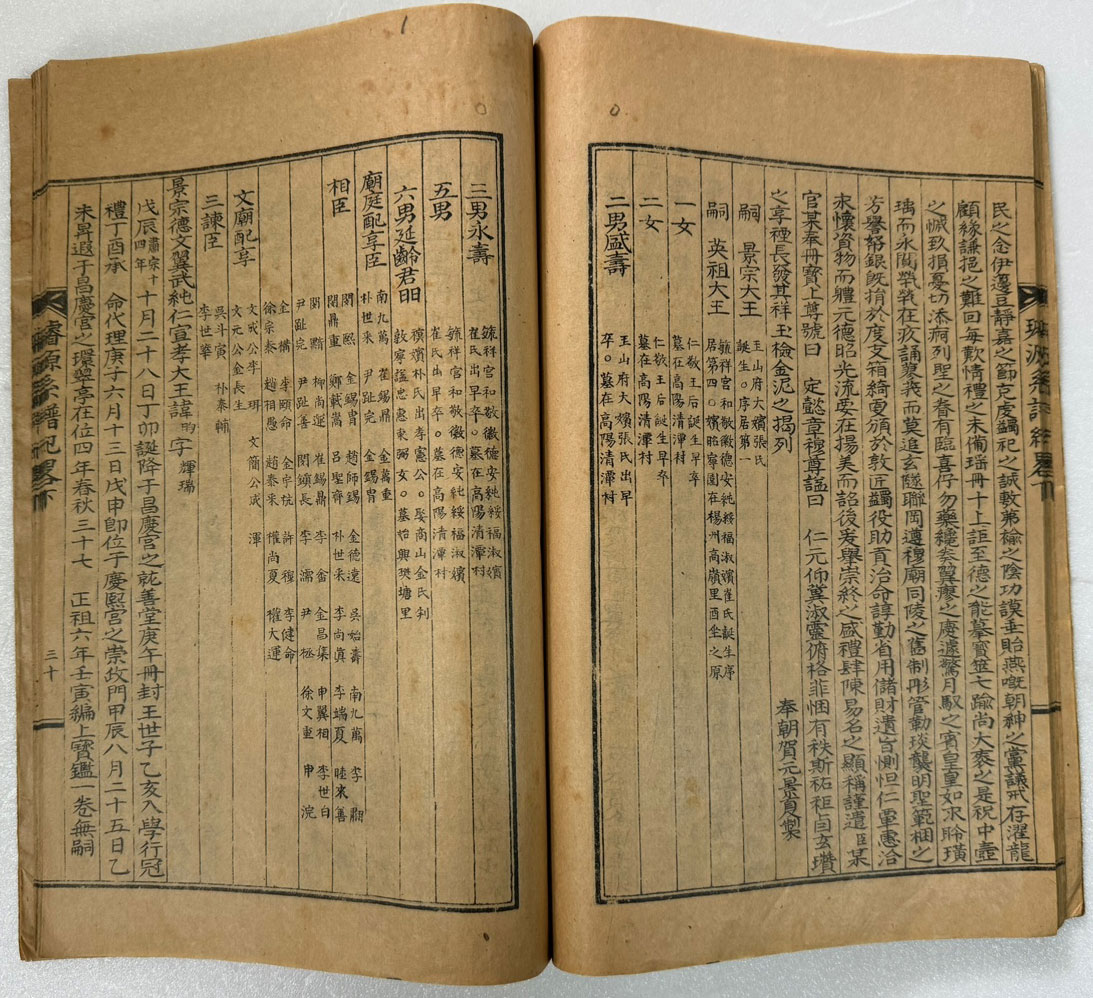 民之念伊邊豆靜嘉之節克虔蠲祀之誠敷苐褕之陰功謨垂貽燕嘅朝紳之黨議戒存濯龍
顧緣謙挹之難回每歎情禮之未備瑤冊十上詎至德之能摹寶筵七踰尚大耋之是祝中壼
之慽玖損憂切添痾列聖之眷有臨喜仔勿藥纔奏翼瘳之慶遽驚月馭之賓皇皇如求聆璜
瑀而永閟㷀㷀在疚誦蓼莪而莫追玄隧聯岡遵穆廟同陵之舊制彤管勒琰襲明聖範梱之
芳譽帑銀旣捐於度支箱綺更頒於敦匠蠲役助貢治命諄勤省用儲財遺旨惻怛仁覃惠洽
永懷資物而體元德昭光流要在揚美而詔後爰擧崇終之盛禮肆陳易名之顯稱謹遣臣某
官某奉冊寶上尊號曰 定懿章穆尊謚曰 仁元仰冀淑靈俯格菲悃有秩斯祜秬卣玄瓚
之享禋長發其祥玉檢金泥之揭列 奉朝賀元景夏製
嗣 景宗大王 玉山府大嬪張氏
誕生。序居第一
嗣 英祖大王 毓祥宮和敬徽德安純綏福淑嬪崔氏誕生序
居第四。嬪昭寧園在楊州高嶺里酉坐之原
一女 仁敬王后誕生早卒
墓在高陽清潭村
二女 仁敬王后誕生早卒
墓在高陽清潭村
二男盛壽 玉山府大嬪張氏出早
卒。墓在高陽清潭村
三男永壽 毓祥宮和敬徽德安純綏福淑嬪
崔氏出早卒。墓在高陽清潭村
五男 毓祥宮和敬徽德安純綏福淑嬪
崔氏出早卒。墓在高陽清潭村
六男延齡君昍 䄙嬪朴氏出孝憲公。娶商山金氏判
敦寧謚忠惠東弼女。墓怡興樊塘里
廟庭配享臣 南九萬 崔錫鼎 金萬重
朴世采 尹趾完 金錫冑
相臣 閔熙 金錫冑 趙師錫 金德遠 吳始壽 南九萬 李䎘
閔鼎重 鄭載嵩 呂聖齊 朴世采 李尚眞 李端夏 睦來善
閔黯 柳尚運 崔錫鼎 李畬 金昌集 申翼相 李世白
尹趾完 尹趾善 閔鎮長 李濡 尹拯 徐文重 申浣
金構 李頤命 金宇杭 許穆 李健命
徐宗泰 趙相愚 趙泰采 權尚夏 權大運
文廟配享 文成公李珥 文簡公成渾
文元公金長生
三諫臣 吳斗寅 朴泰輔
李世華
景宗德文翼武純仁宣孝大王諱昀字 輝瑞
戊辰肅宗十四年十月二十八日丁卯誕降于昌慶宮之就善堂庚午冊封王世子乙亥入學行冠
禮丁酉承 命代理庚子六月十三日戊申卽位于慶熙宮之崇政門甲辰八月二十五日乙
未昇遐于昌慶宮之環翠亭在位四年春秋三十七 正祖六年壬寅編上寶鑑一卷無嗣
璿源系譜紀畧下
三十